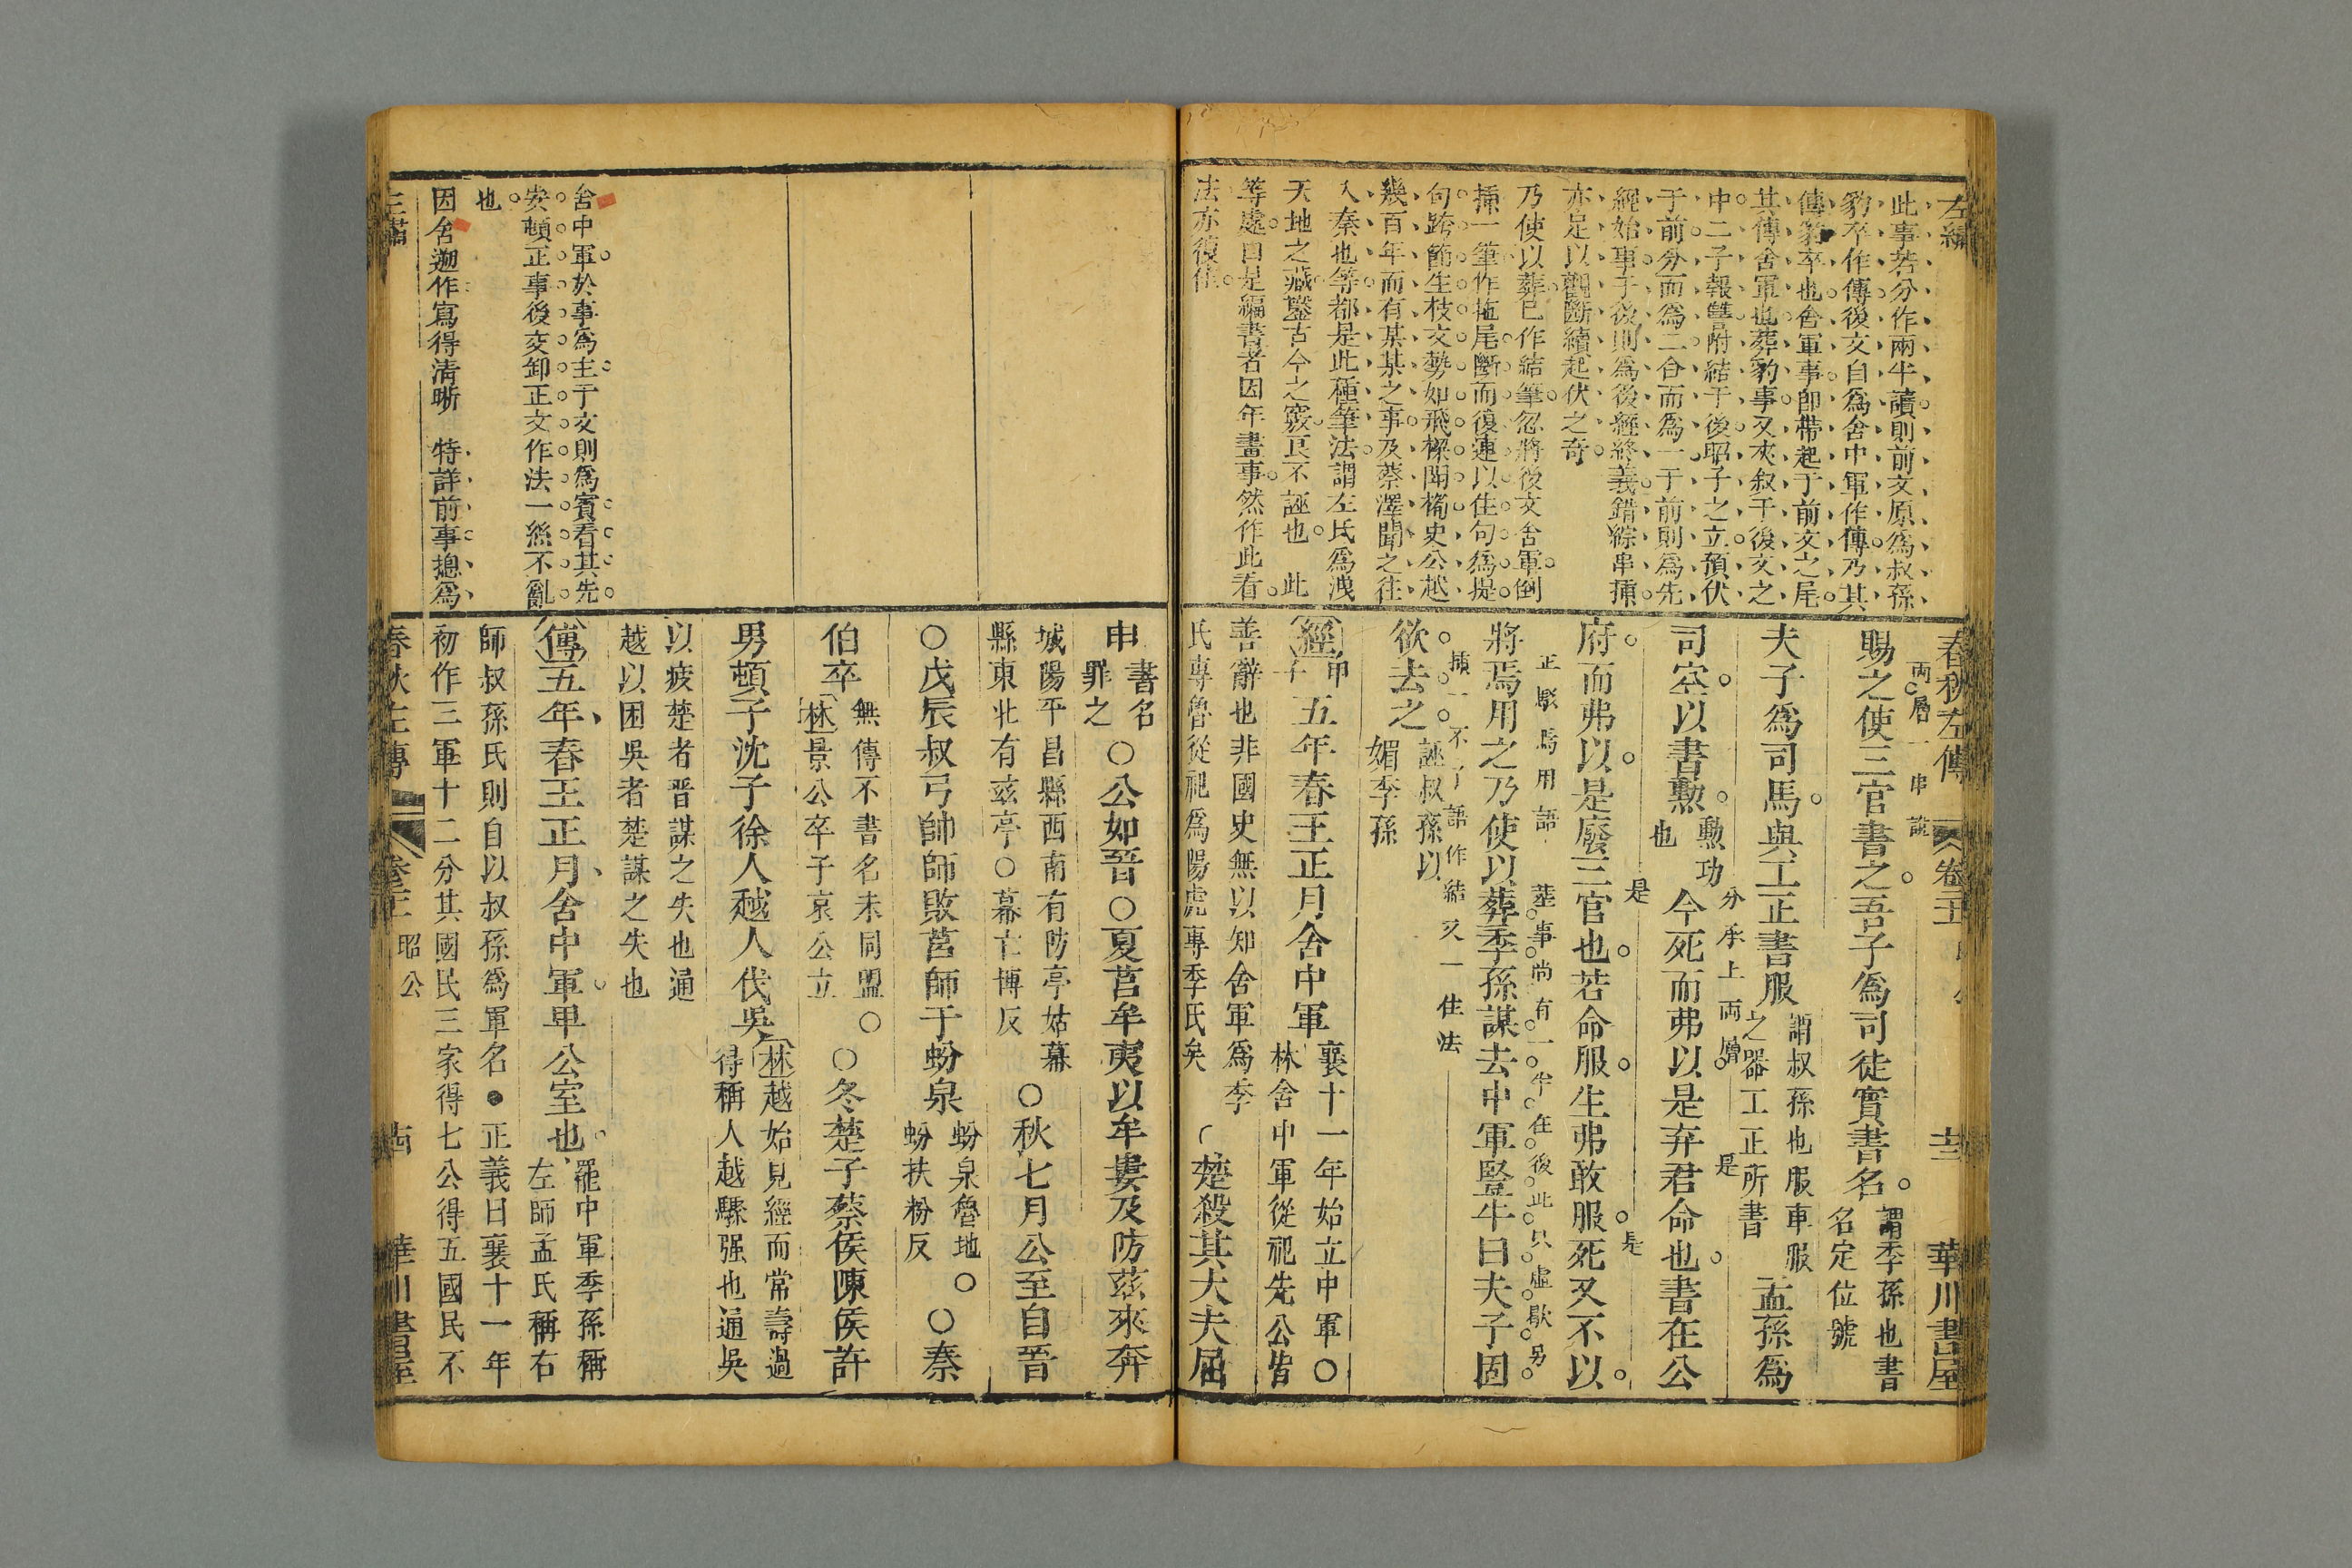 左繡
此事若分作兩半讀則前文原爲叔孫
豹卒作傳後文自爲舍中軍作傳乃其
傳豹卒也舍軍事卽帶起于前文之尾
其傳舍軍也葬豹事又夾叙于後文之
中二子報讐附結于後昭子之立預伏
于前分而爲二合而爲一于前則爲先
經始事于後則爲後經終義錯綜串揷
亦足以觀斷續起伏之奇
乃使以葬已作結筆忽將後文舍軍倒
揷一筆作拖尾斷而復連以住句爲提
句跨節生枝文勢如飛檪閒橋史公越
幾百年而有某某之事及蔡澤聞之往
入秦也等都是此種筆法謂左氏爲洩
天地之藏鑿古今之竅良不誣也 此
等處自是編書者因年畫事然作此看
法亦復佳
春秋左傳 卷三 昭公 華川書屋
兩層一串說
賜之使三官書之吾子爲司徒實書名
謂季孫也書
名定位號
夫子爲司馬與工正書服
謂叔孫也服車服
之器工正所書
孟孫爲
分承上兩層 是
司空以書勳
勳功
也
今死而弗以是弃君命也書在公
是 是
府而弗以是廢三官也若命服生弗敢服死又不以
正駁焉用語 葬事尚有一半在後此只虛歇另
將焉用之乃使以葬季孫謀去中軍豎牛曰夫子固
揷一不了語作結又一住法
欲去之
誣叔孫以
媚季孫
經
甲
子
五年春王正月舍中軍
襄十一年始立中軍○
林舍中軍從祀先公皆
善辭也非國史無以知舍軍爲季
氏專魯從祀爲陽虎專季氏矣
楚殺其大夫屈
申
書名
罪之
○公如晉○夏莒牟夷以牟婁及防茲來奔
城陽平昌縣西南有防亭姑幕
縣東北有茲亭○幕亡博反
○秋七月公至自晉
○戊辰叔弓帥師敗莒師于蚡泉
蚡泉魯地○
蚡扶粉反
○秦
伯卒
無傳不書名未同盟○
林景公卒子哀公立
○冬楚子蔡侯陳侯許
男頓子沈子徐人越人伐吳
林越始見經而常壽過
得稱人越驟强也通吳
以疲楚者晉謀之失也通
越以困吳者楚謀之失也
傳五年春王正月舍中軍卑公室也
罷中軍季孫稱
左師孟氏稱右
師叔孫氏則自以叔孫爲軍名●正義曰襄十一年
初作三軍十二分其國民三家得七公得五國民不
舍中軍於事爲主于文則爲賓看其先
安頓正事後交卸正文作法一絲不亂
也
因舍遡作寫得淸晣 特詳前事揔爲
春秋左傳 昭公 華川書屋